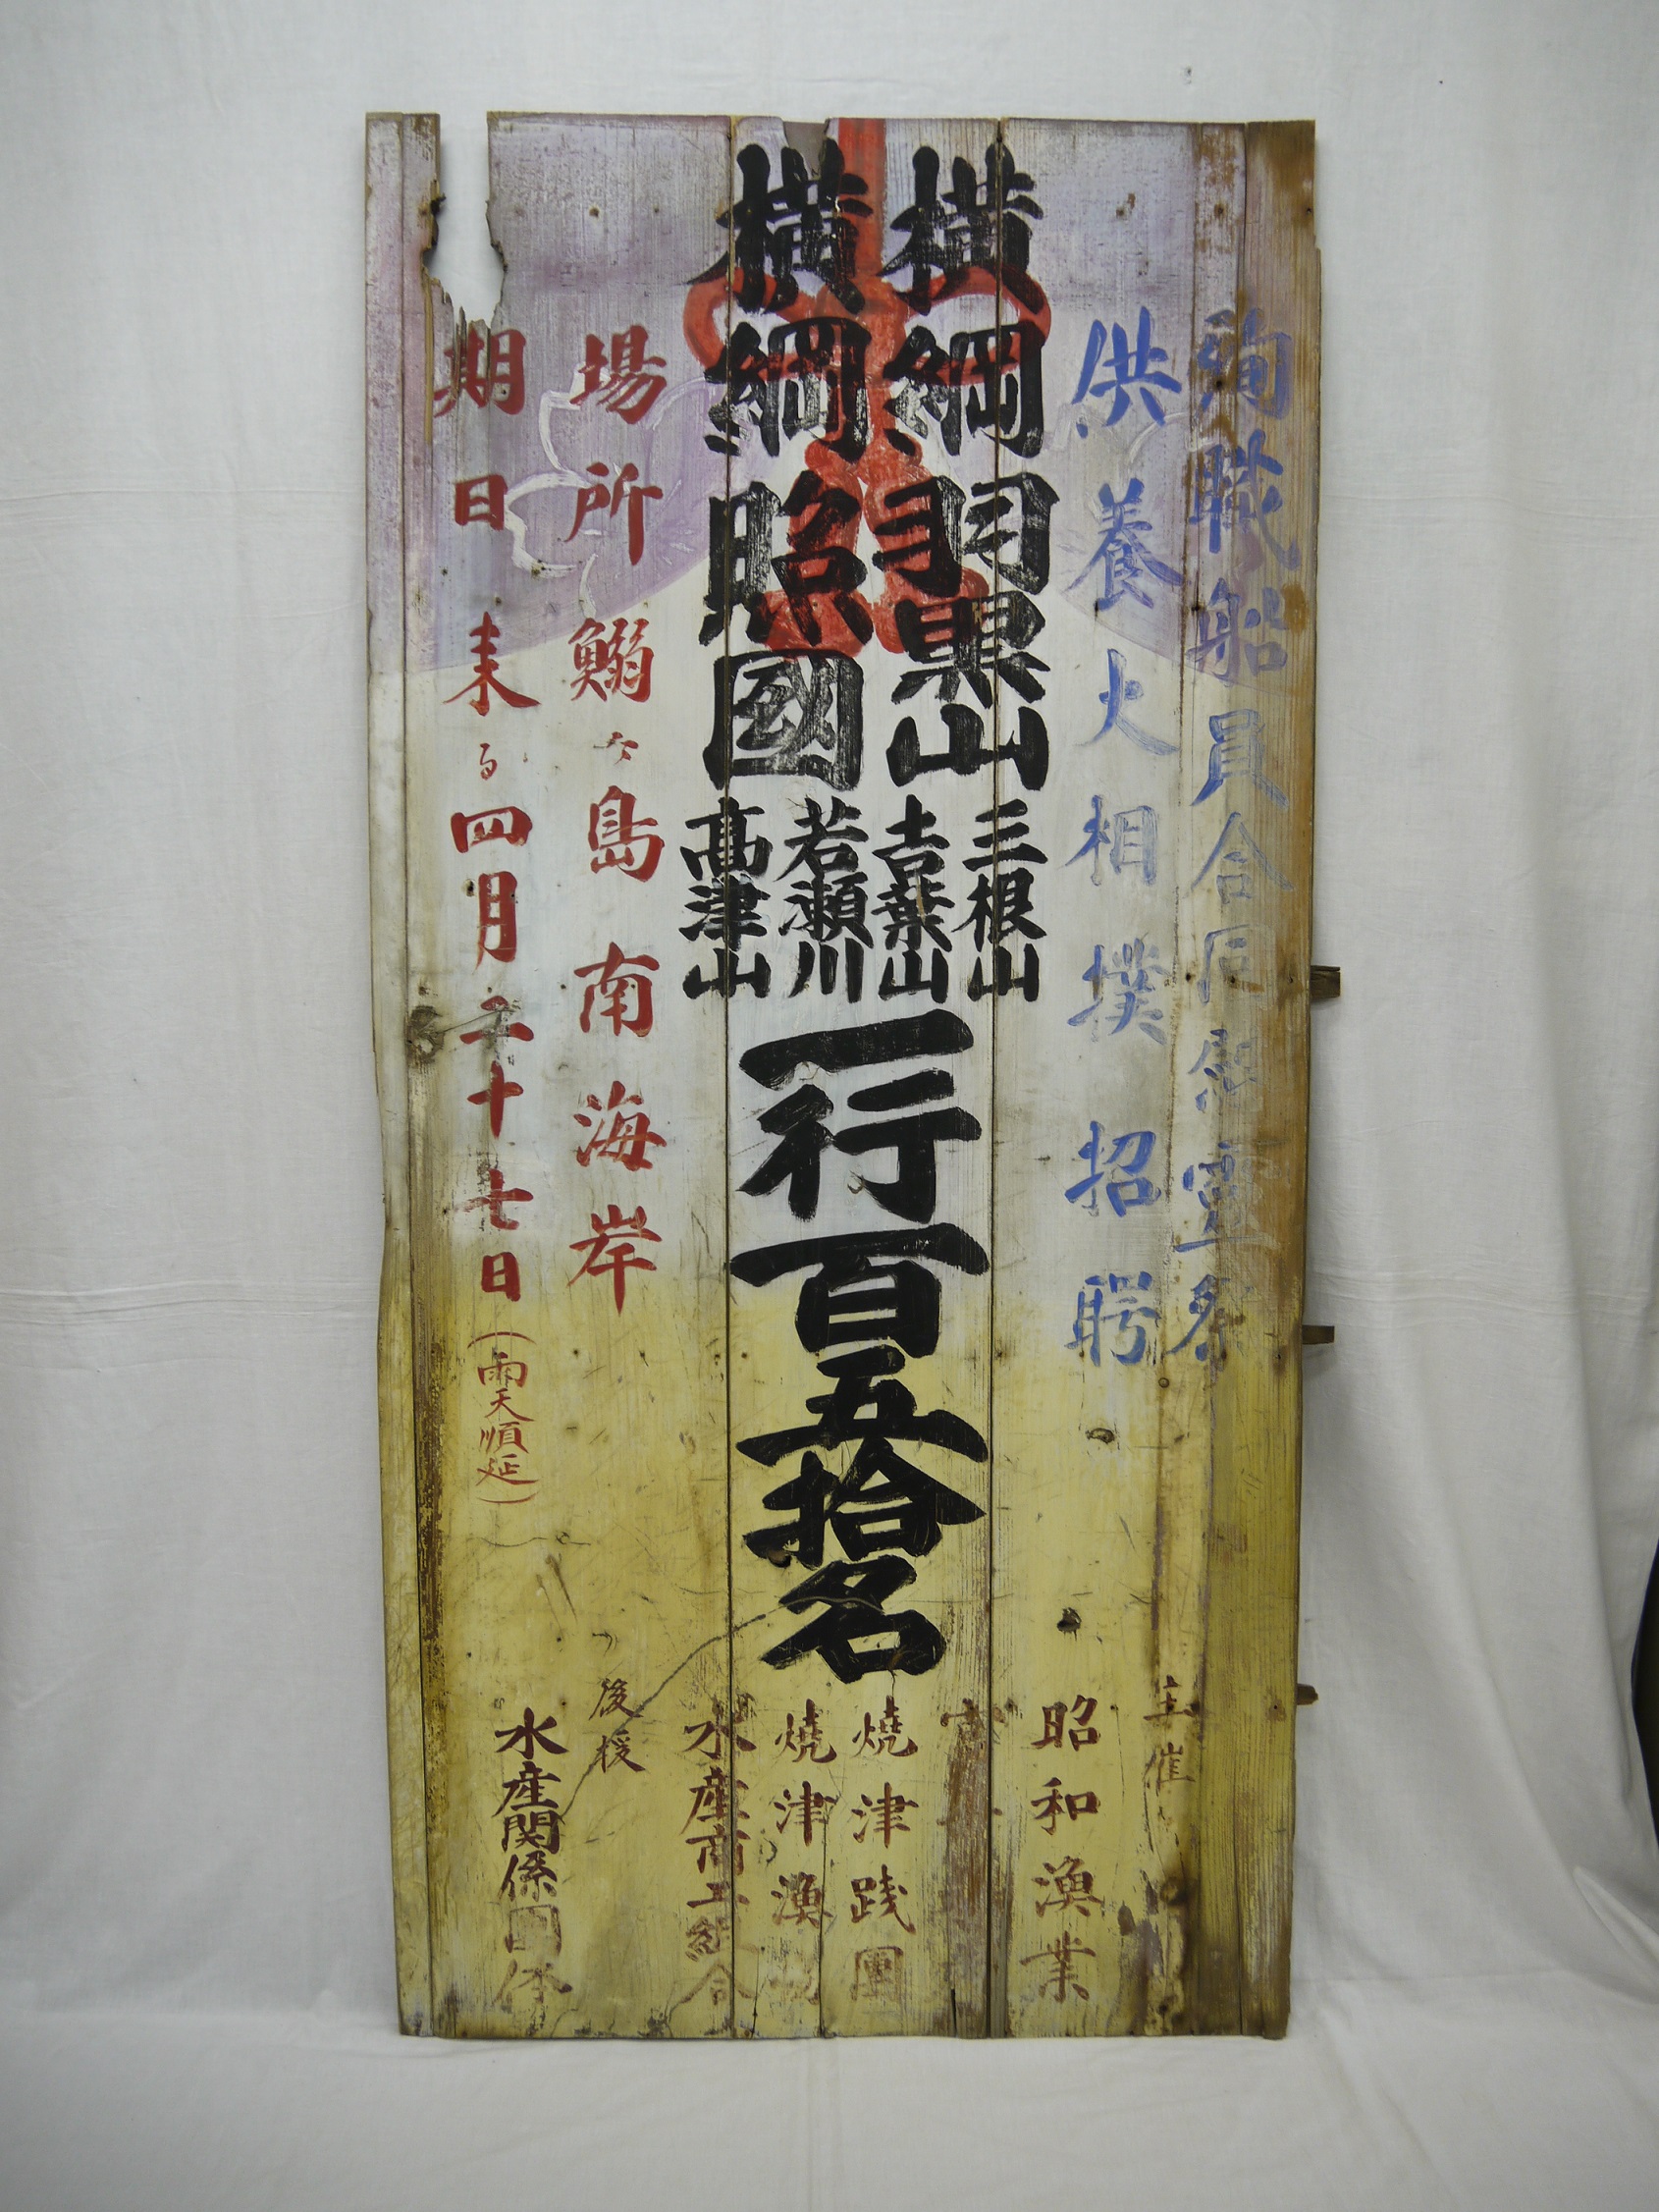 殉職船員合同慰霊祭
供養大相撲招聘
横綱羽黒山
横綱照國
三根山
吉葉山
若瀬川
髙津山
一行百五拾名
場所 鰯ヶ島南海岸
期日 来る四月二十七日(雨天順延)
主催
昭和漁業
焼津踐團
焼津漁
水産商工組合
後援
水産関係團体